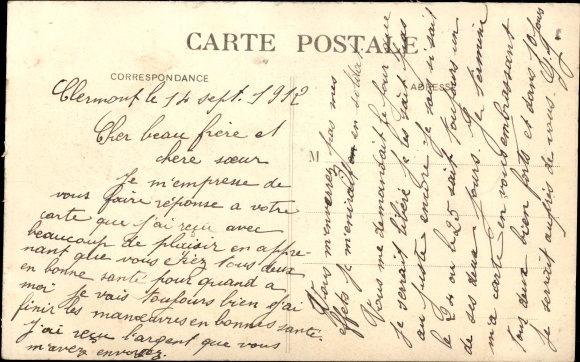 CARTE POSTALE
CORRESPONDANCE
ADRESSE
M
Clermont le 14 sept. 1912
Cher beau frère et
chere sœur
Je m'empresse de
vous faire réponse a votre
carte que j'ai reçu avec
beaucoup de plaisir en appre
nant que vous étiez tous deux
en bonne santé pour quand a
moi je vais toujours bien j'ai
finir les manœuvres en bonne santé.
j'ai reçu l'argent que vous
m'avez envoyez.
Vous m'enverrez pas mes
effets je m'enirait en
Vous me demandait le jour que
je serrait libéré je les sait pas
au juste encore je sait
le 24 ou le 25 sait toujours un
de ses deux jours. Je termine
m'a carte en vous embrassant
tous deux bien forts et dans 10 jours
je serait auprès de vous.